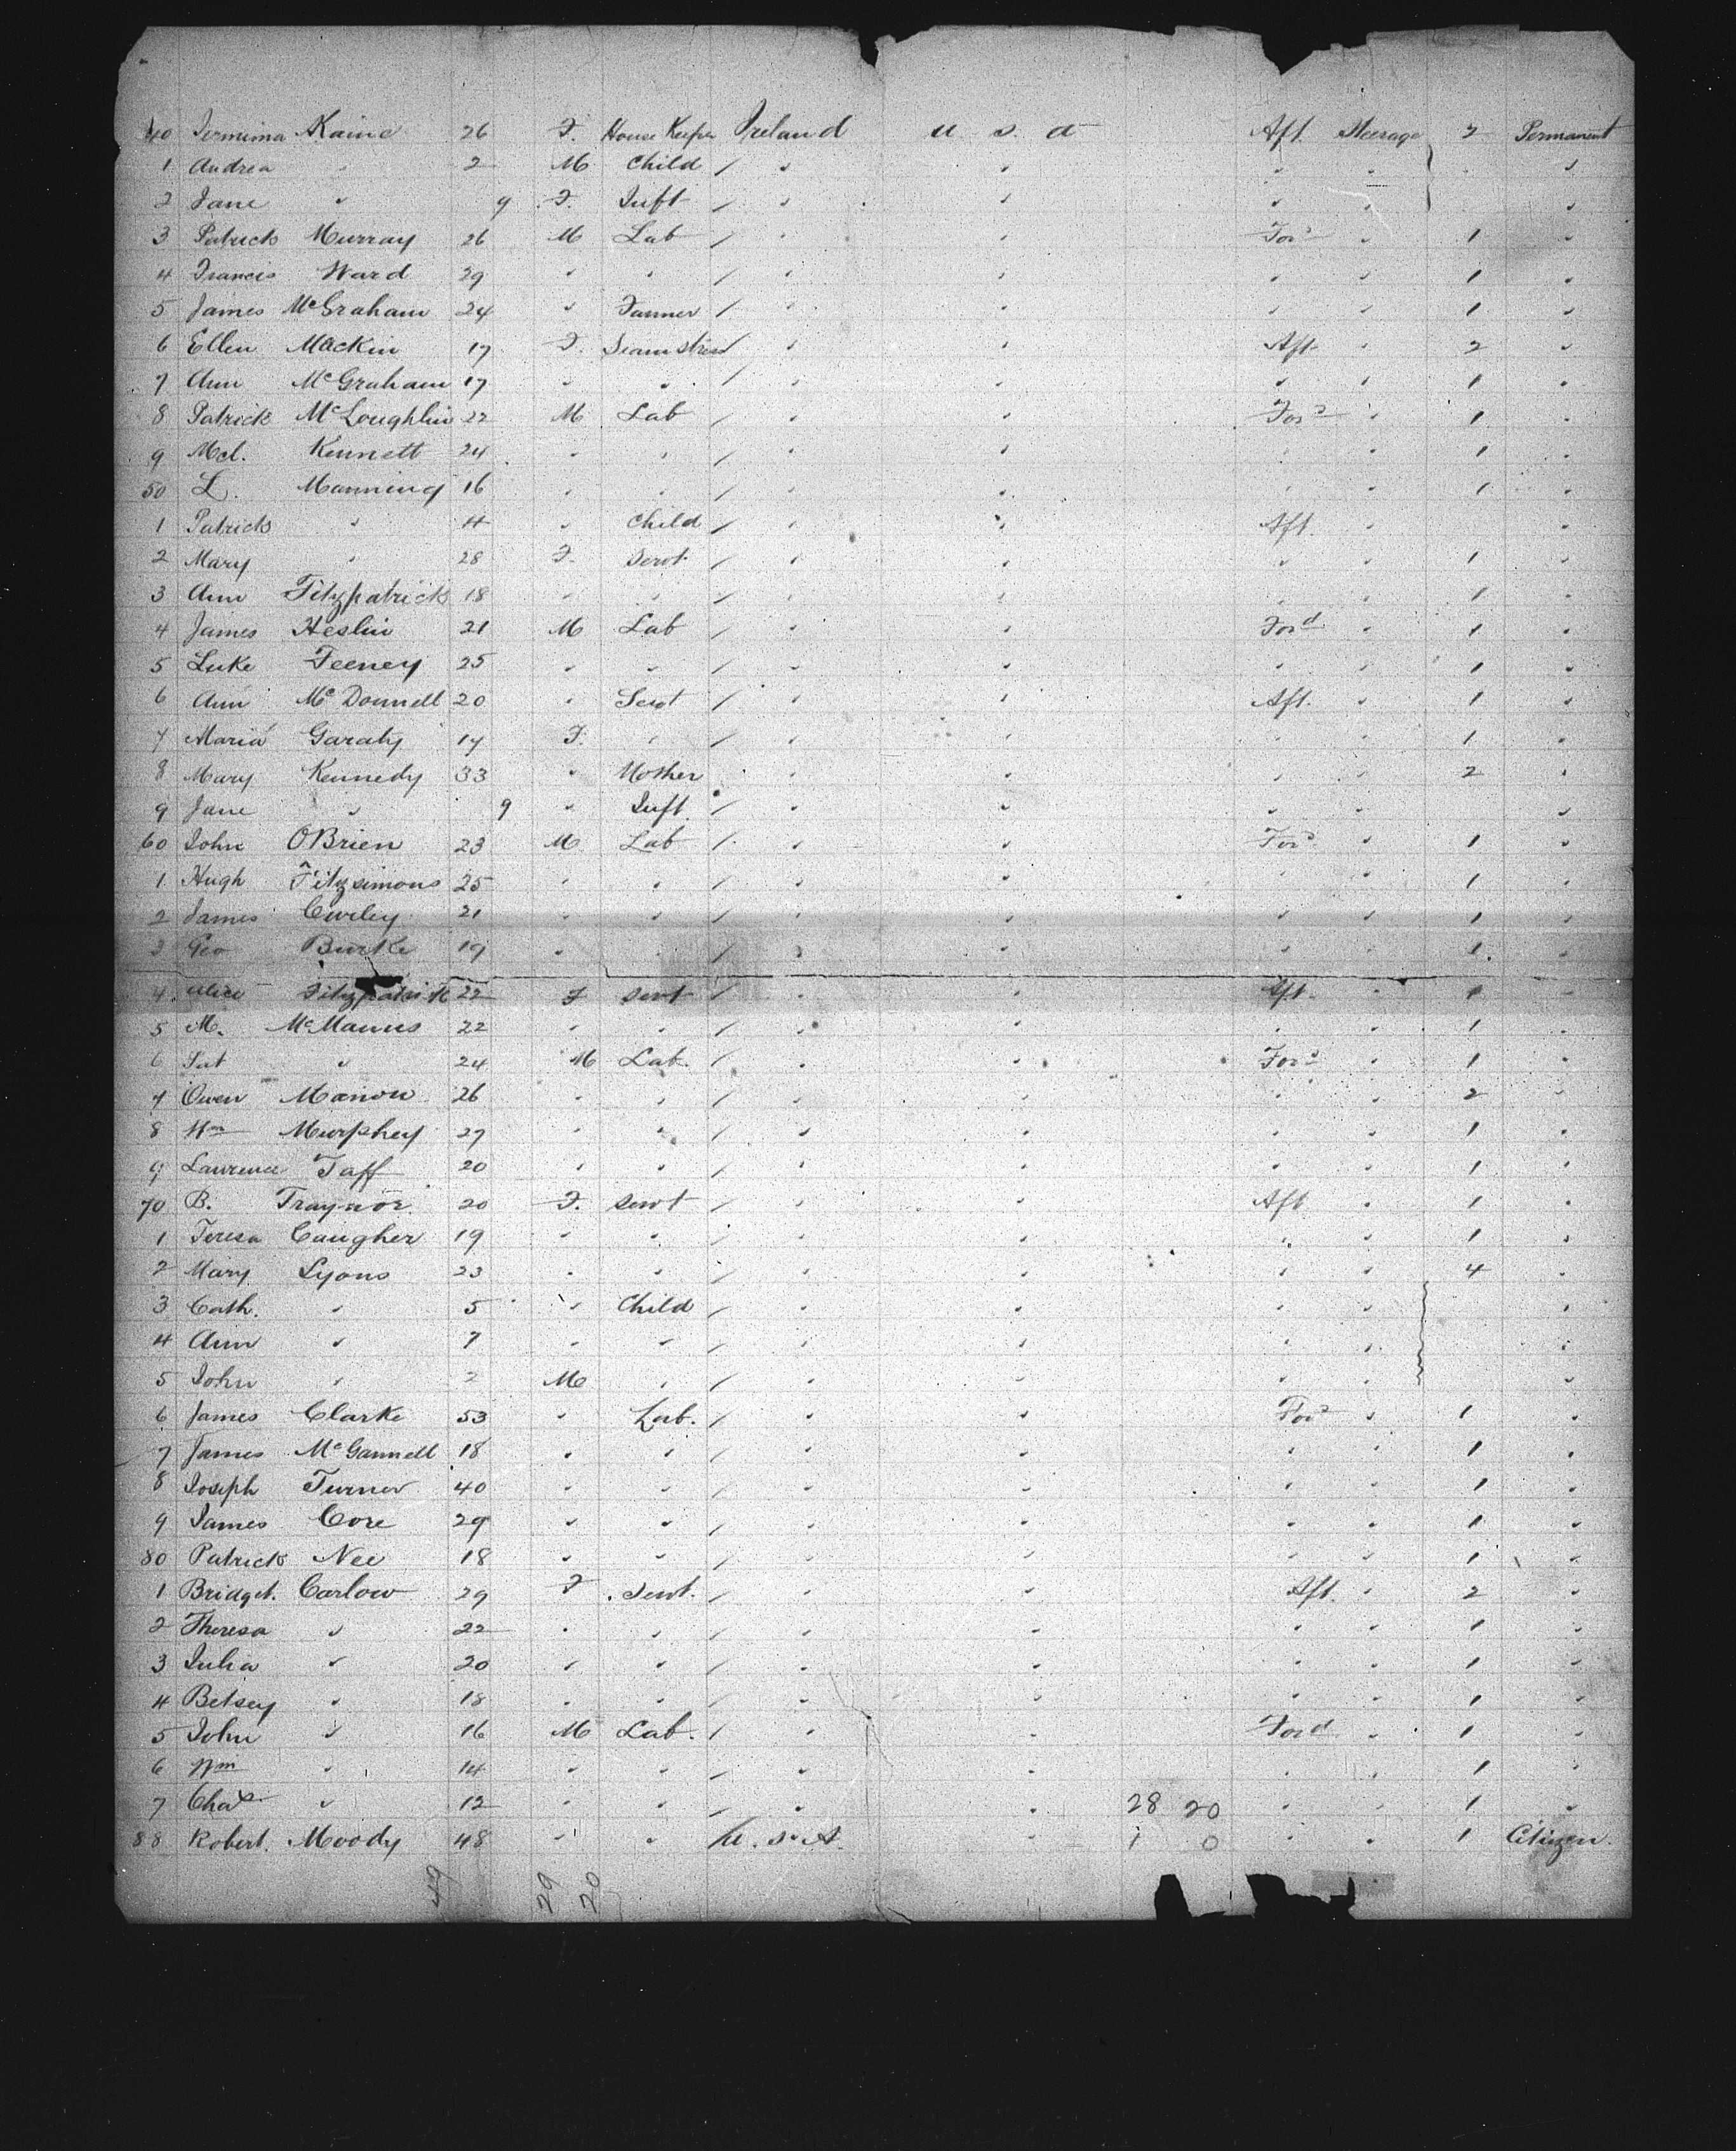 40 Jermima Kaine 26 F. House Keeper Ireland U. S. A Aft. Steerage 2 Permanent
1 Andrea " 2 M Child / " " " " "
2 Jane " 9 F. Inft / " " " " "
3 Patrick Murray 26 M Lab / " " For'd " 1 "
4 Francis Ward 29 " " / " " " " 1 "
5 James McGraham 24 " Farmer / " " " " 1 "
6 Ellen Mackin 17 F. Seamstress / " " Aft. " 2 "
7 Ann McGraham 17 " " / " " " " 1 "
8 Patrick McLoughlin 22 M Lab / " " For'd " 1 "
9 Mcl. Kennett 24 " " / " " " " 1 "
50 L. Manning 16 " " / " " " " 1 "
1 Patrick " 4 " Child / " " Aft. " "
2 Mary " 28 F. Servt. / " " " " 1 "
3 Ann Fitzpatrick 18 " " / " " " " 1 "
4 James Heslin 21 M Lab / " " For'd " 1 "
5 Luke Feeney 25 " " / " " " " 1 "
6 Ann McDonnell 20 " Servt / " " Aft. " 1 "
7 Maria Garaty 17 F. " / " " " " 1 "
8 Mary Kennedy 33 " Mother " " " " 2 "
9 Jane " 9 " Inft. / " " " " "
60 John O'Brien 23 M Lab / " " For'd " 1 "
1 Hugh Fitzsimons 25 " " / " " " " 1 "
2 James Curley 21 " " / " " " " 1 "
3 Geo Burke 19 " " / " " " " 1 "
4 Alice Fitzpatrick 22 F Servt / " " Aft. " 1 "
5 M. McManus 22 " " / " " " " 1 "
6 Pat " 24 M Lab. / " " For'd " 1 "
7 Owen Manon 26 " " / " " " " 2 "
8 Wm Murphey 27 " " / " " " " 1 "
9 Lawrence Taff 20 " " / " " " " 1 "
70 B. Traynor 20 F. Servt / " " Aft " 1 "
1 Teresa Caugher 19 " " / " " " " 1 "
2 Mary Lyons 23 " " / " " " " 4 "
3 Cath. " 5 " Child / " " " " "
4 Ann " 7 " " / " " " " "
5 John " 2 M " / " " " " "
6 James Clarke 53 " Lab. / " " For'd " 1 "
7 James McGannell 18 " " / " " " " 1 "
8 Joseph Turner 40 " " / " " " " 1 "
9 James Core 29 " " / " " " " 1 "
80 Patrick Nee 18 " " / " " " " 1 "
1 Bridget. Carlow 29 F. Servt. / " " Aft. " 2 "
2 Theresa " 22 " " / " " " " 1 "
3 Julia " 20 " " / " " " " 1 "
4 Betsey " 18 " " / " " " " 1 "
5 John " 16 M Lab. / " " For'd " 1 "
6 Wm " 14 " " / " " " " 1 "
7 Chas " 12 " " / " " 28 20 " " 1 "
88 Robert. Moody 48 " " U. S. A. " 1 0 " " 1 Citizen.
49 29 20